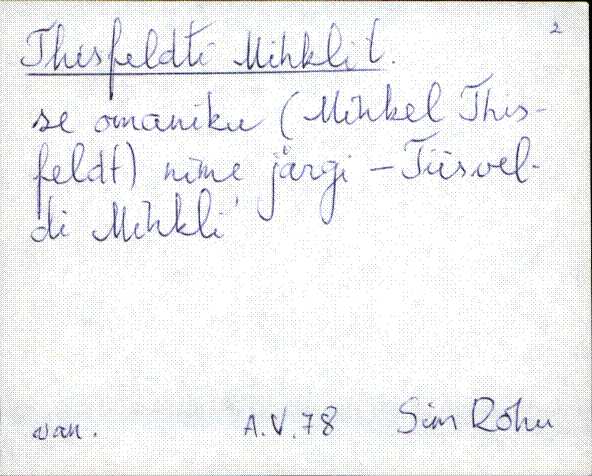 2
Thisfeldti Mihkli t.
se omaniku (Mihkel This-
feldt) nime järgi – Tiisvel-
di Mihkli
van. A.V.78 Sim Rõhu